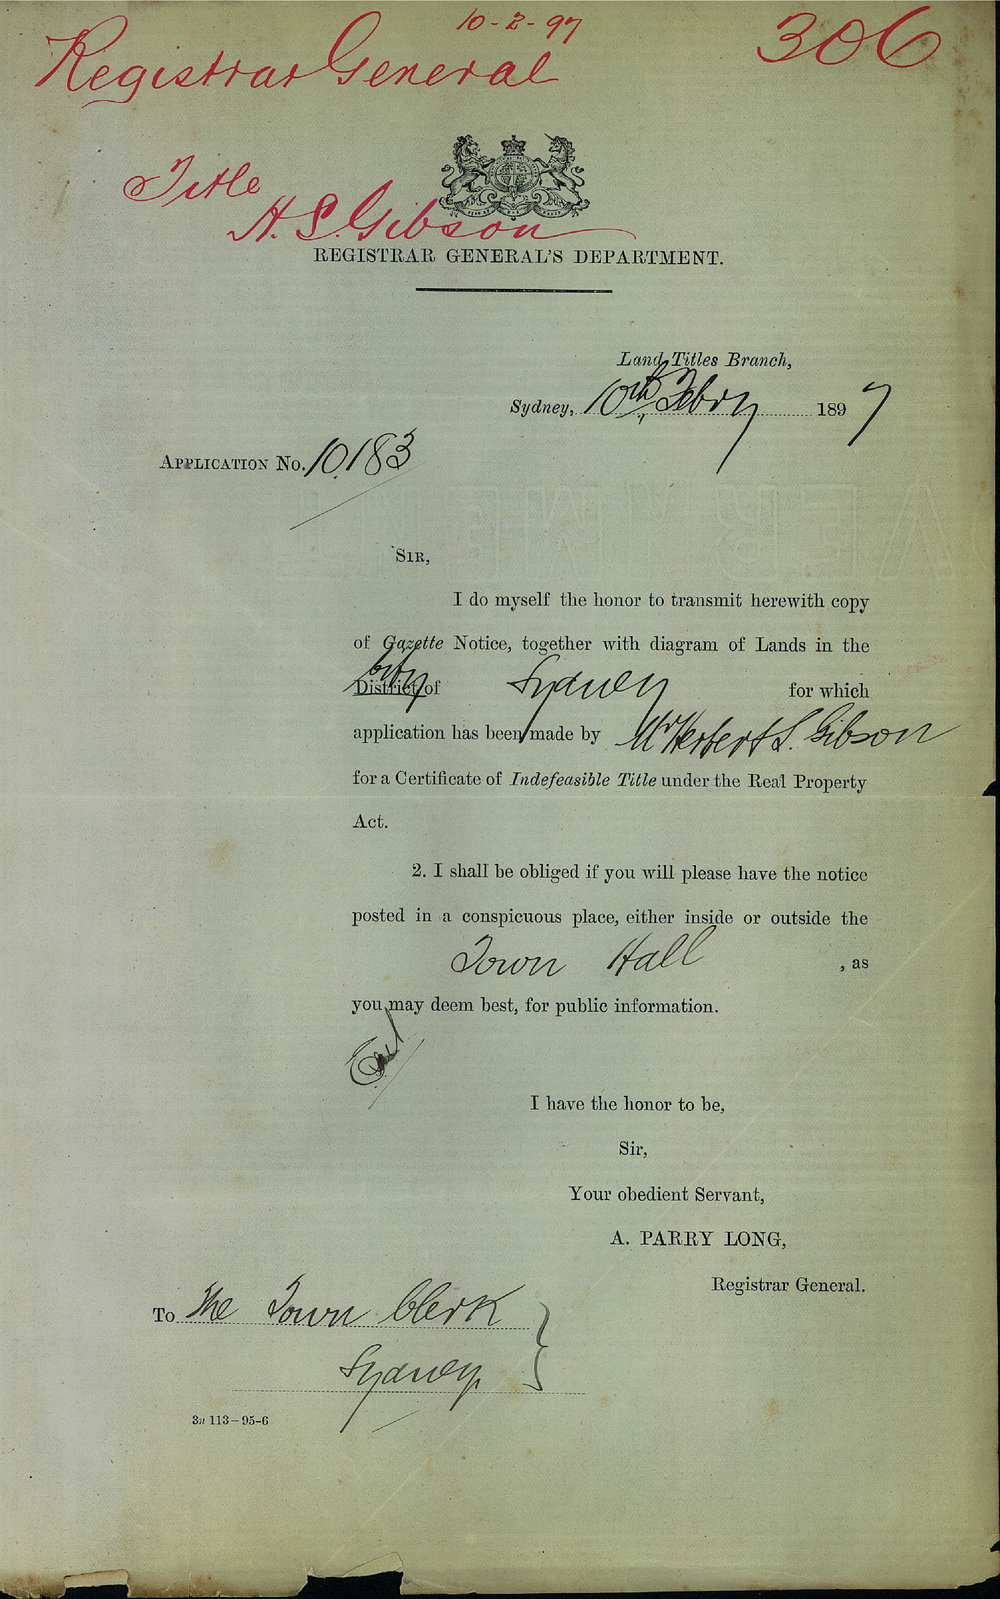 10-2-97
Registrar General
306
Title
H. S. Gibson
REGISTRAR GENERAL'S DEPARTMENT.
Land Titles Branch,
Sydney, 10th Febry 1897
APPLICATION No. 10.183
SIR,
I do myself the honor to transmit herewith copy
of Gazette Notice, together with diagram of Lands in the
City
District of Sydney for which
application has been made by Mr Herbert S. Gibson
for a Certificate of Indefeasible Title under the Real Property
Act.
2. I shall be obliged if you will please have the notice
posted in a conspicuous place, either inside or outside the
Town Hall , as
you may deem best, for public information.
I have the honor to be,
Sir,
Your obedient Servant,
A. PARRY LONG,
Registrar General.
To The Town Clerk
Sydney
3n 113-95-6